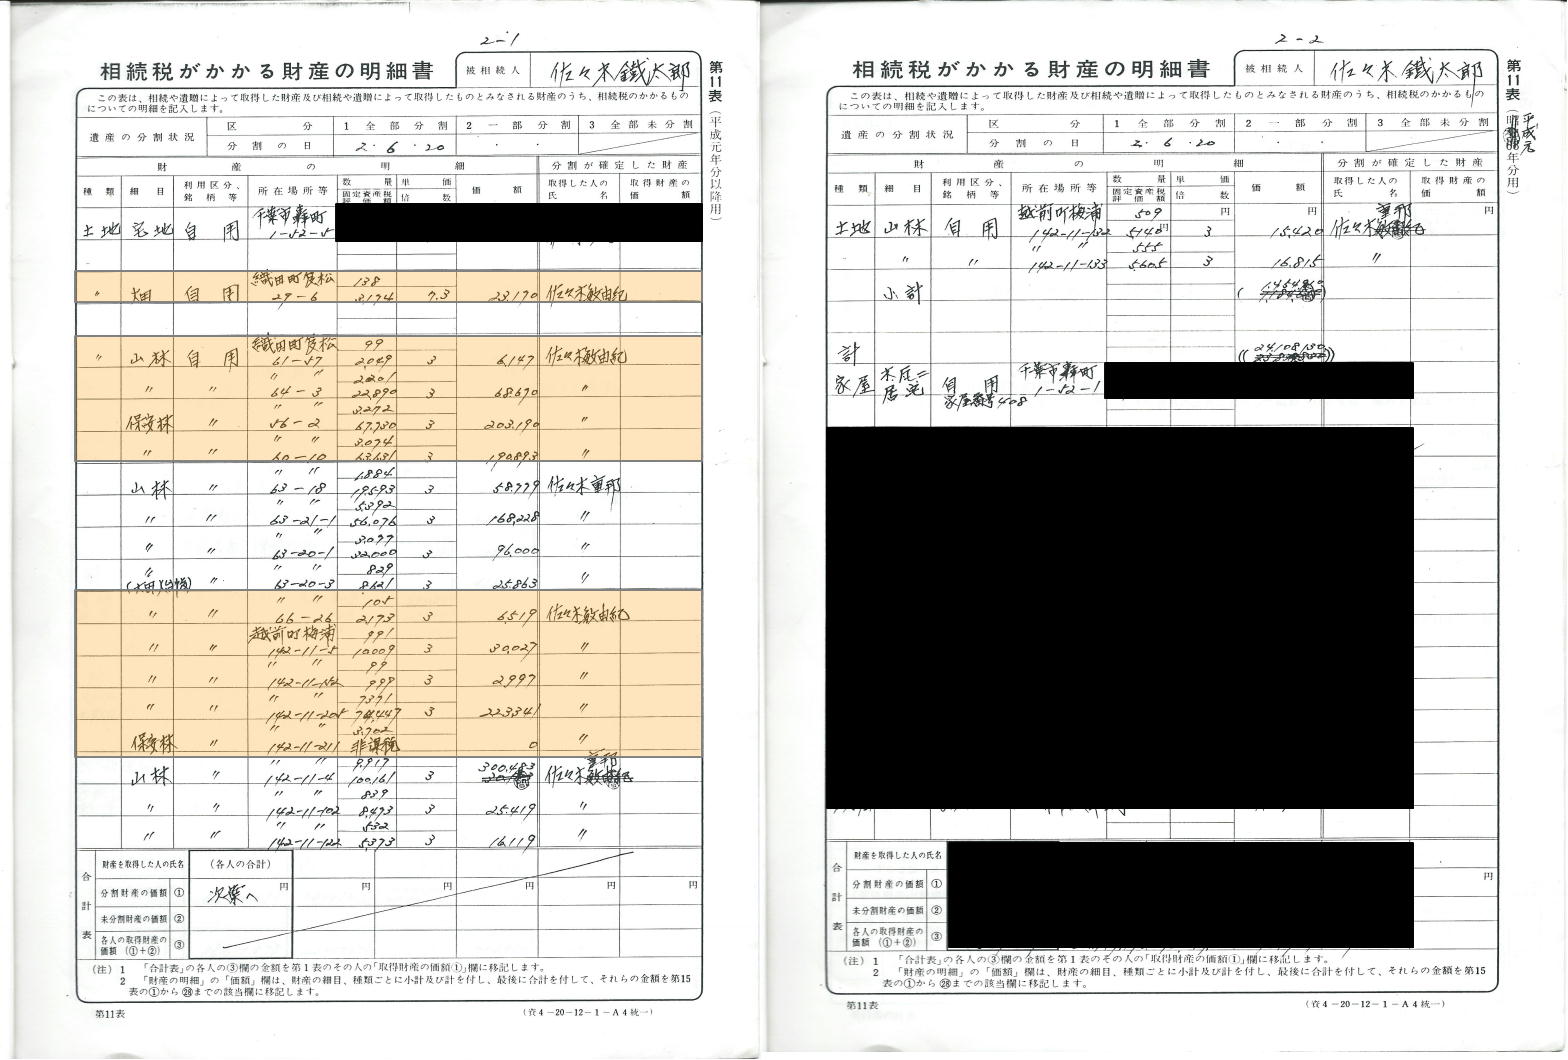 2-1
相続税がかかる財産の明細書
被相続人 佐々木鐵太郎
第11表(平成元年分以降用)
この表は、相続や遺贈によって取得した財産及び相続や遺贈によって取得したものとみなされる財産のうち、相続税のかかるもの
についての明細を記入します。
遺産の分割状況 区分 1 全部分割 2 一部分割 3 全部未分割
分割の日 2・6・20 ・ ・
財産の明細 分割が確定した財産
種類 細目 利用区分、銘柄等 所在場所等 数量 固定資産税評価額 単価 倍数 価額 取得した人の氏名 取得財産の価額
土地 宅地 自用 千葉市轟町
1-52-5
〃 畑 自用 織田町笈松 138
29-6 3,174 7.3 23,170 佐々木敏由紀
〃 山林 自用 織田町笈松 99
61-57 2,049 3 6,147 佐々木敏由紀
〃 〃 〃 〃 2,201
64-3 22,890 3 68,670 〃
保安林 〃 〃 〃 3,272
56-2 67,730 3 203,190 〃
〃 〃 〃 〃 3,074
60-10 63,631 3 190,893 〃
山林 〃 〃 〃 1,884
63-18 19,593 3 58,779 佐々木重邦
〃 〃 〃 〃 5,392
63-21-1 56,076 3 168,228 〃
〃 〃 〃 〃 3,077
63-20-1 32,000 3 96,000 〃
〃 〃 〃 〃 829
63-20-3 8,621 3 25,863 〃
〃 〃 〃 〃 105
66-26 2,173 3 6,519 佐々木敏由紀
〃 〃 越前町梅浦 991
142-11-5 10,009 3 30,027 〃
〃 〃 〃 〃 99
999 3 2,997 〃
〃 〃 〃 〃 7,371
142-11-205 74,447 3 223,341 〃
保安林 〃 〃 〃 3,702
142-11-211 非課税 0 〃
山林 〃 〃 〃 9,917 重邦
142-11-4 100,161 3 300,483 佐々木
〃 〃 〃 〃 839
142-11-102 8,473 3 25,419 〃
〃 〃 〃 〃 532
142-11-122 5,373 3 16,119 〃
合計表
財産を取得した人の氏名 (各人の合計)
分割財産の価額 ① 次葉へ 円 円 円 円 円 円
未分割財産の価額 ②
各人の取得財産の価額(①+②) ③
(注) 1 「合計表」の各人の③欄の金額を第1表のその人の「取得財産の価額①」欄に移記します。
2 「財産の明細」の「価額」欄は、財産の細目、種類ごとに小計及び計を付し、最後に合計を付して、それらの金額を第15
表の①から㉘までの該当欄に移記します。
第11表 (資4-20-12-1-A4統一)
2-2
相続税がかかる財産の明細書
被相続人 佐々木鐵太郎
第11表
平成元
年分用)
この表は、相続や遺贈によって取得した財産及び相続や遺贈によって取得したものとみなされる財産のうち、相続税のかかるもの
についての明細を記入します。
遺産の分割状況 区分 1 全部分割 2 一部分割 3 全部未分割
分割の日 2・6・20 ・ ・
財産の明細 分割が確定した財産
種類 細目 利用区分、銘柄等 所在場所等 数量 固定資産税評価額 単価 倍数 価額 取得した人の氏名 取得財産の価額
土地 山林 自用 越前町梅浦 509 円 円 重邦 円
142-11-132 5,140円 3 15,420 佐々木
〃 〃 〃 〃 555
142-11-133 5,605 3 16,815 〃
小計
計 24,108,130
家屋 居宅 自用 千葉市轟町
家屋番号408 1-52-1
合計表
財産を取得した人の氏名
分割財産の価額 ① 円
未分割財産の価額 ②
各人の取得財産の価額(①+②) ③
(注) 1 「合計表」の各人の③欄の金額を第1表のその人の「取得財産の価額①」欄に移記します。
2 「財産の明細」の「価額」欄は、財産の細目、種類ごとに小計及び計を付し、最後に合計を付して、それらの金額を第15
表の①から㉘までの該当欄に移記します。
第11表 (資4-20-12-1-A4統一)